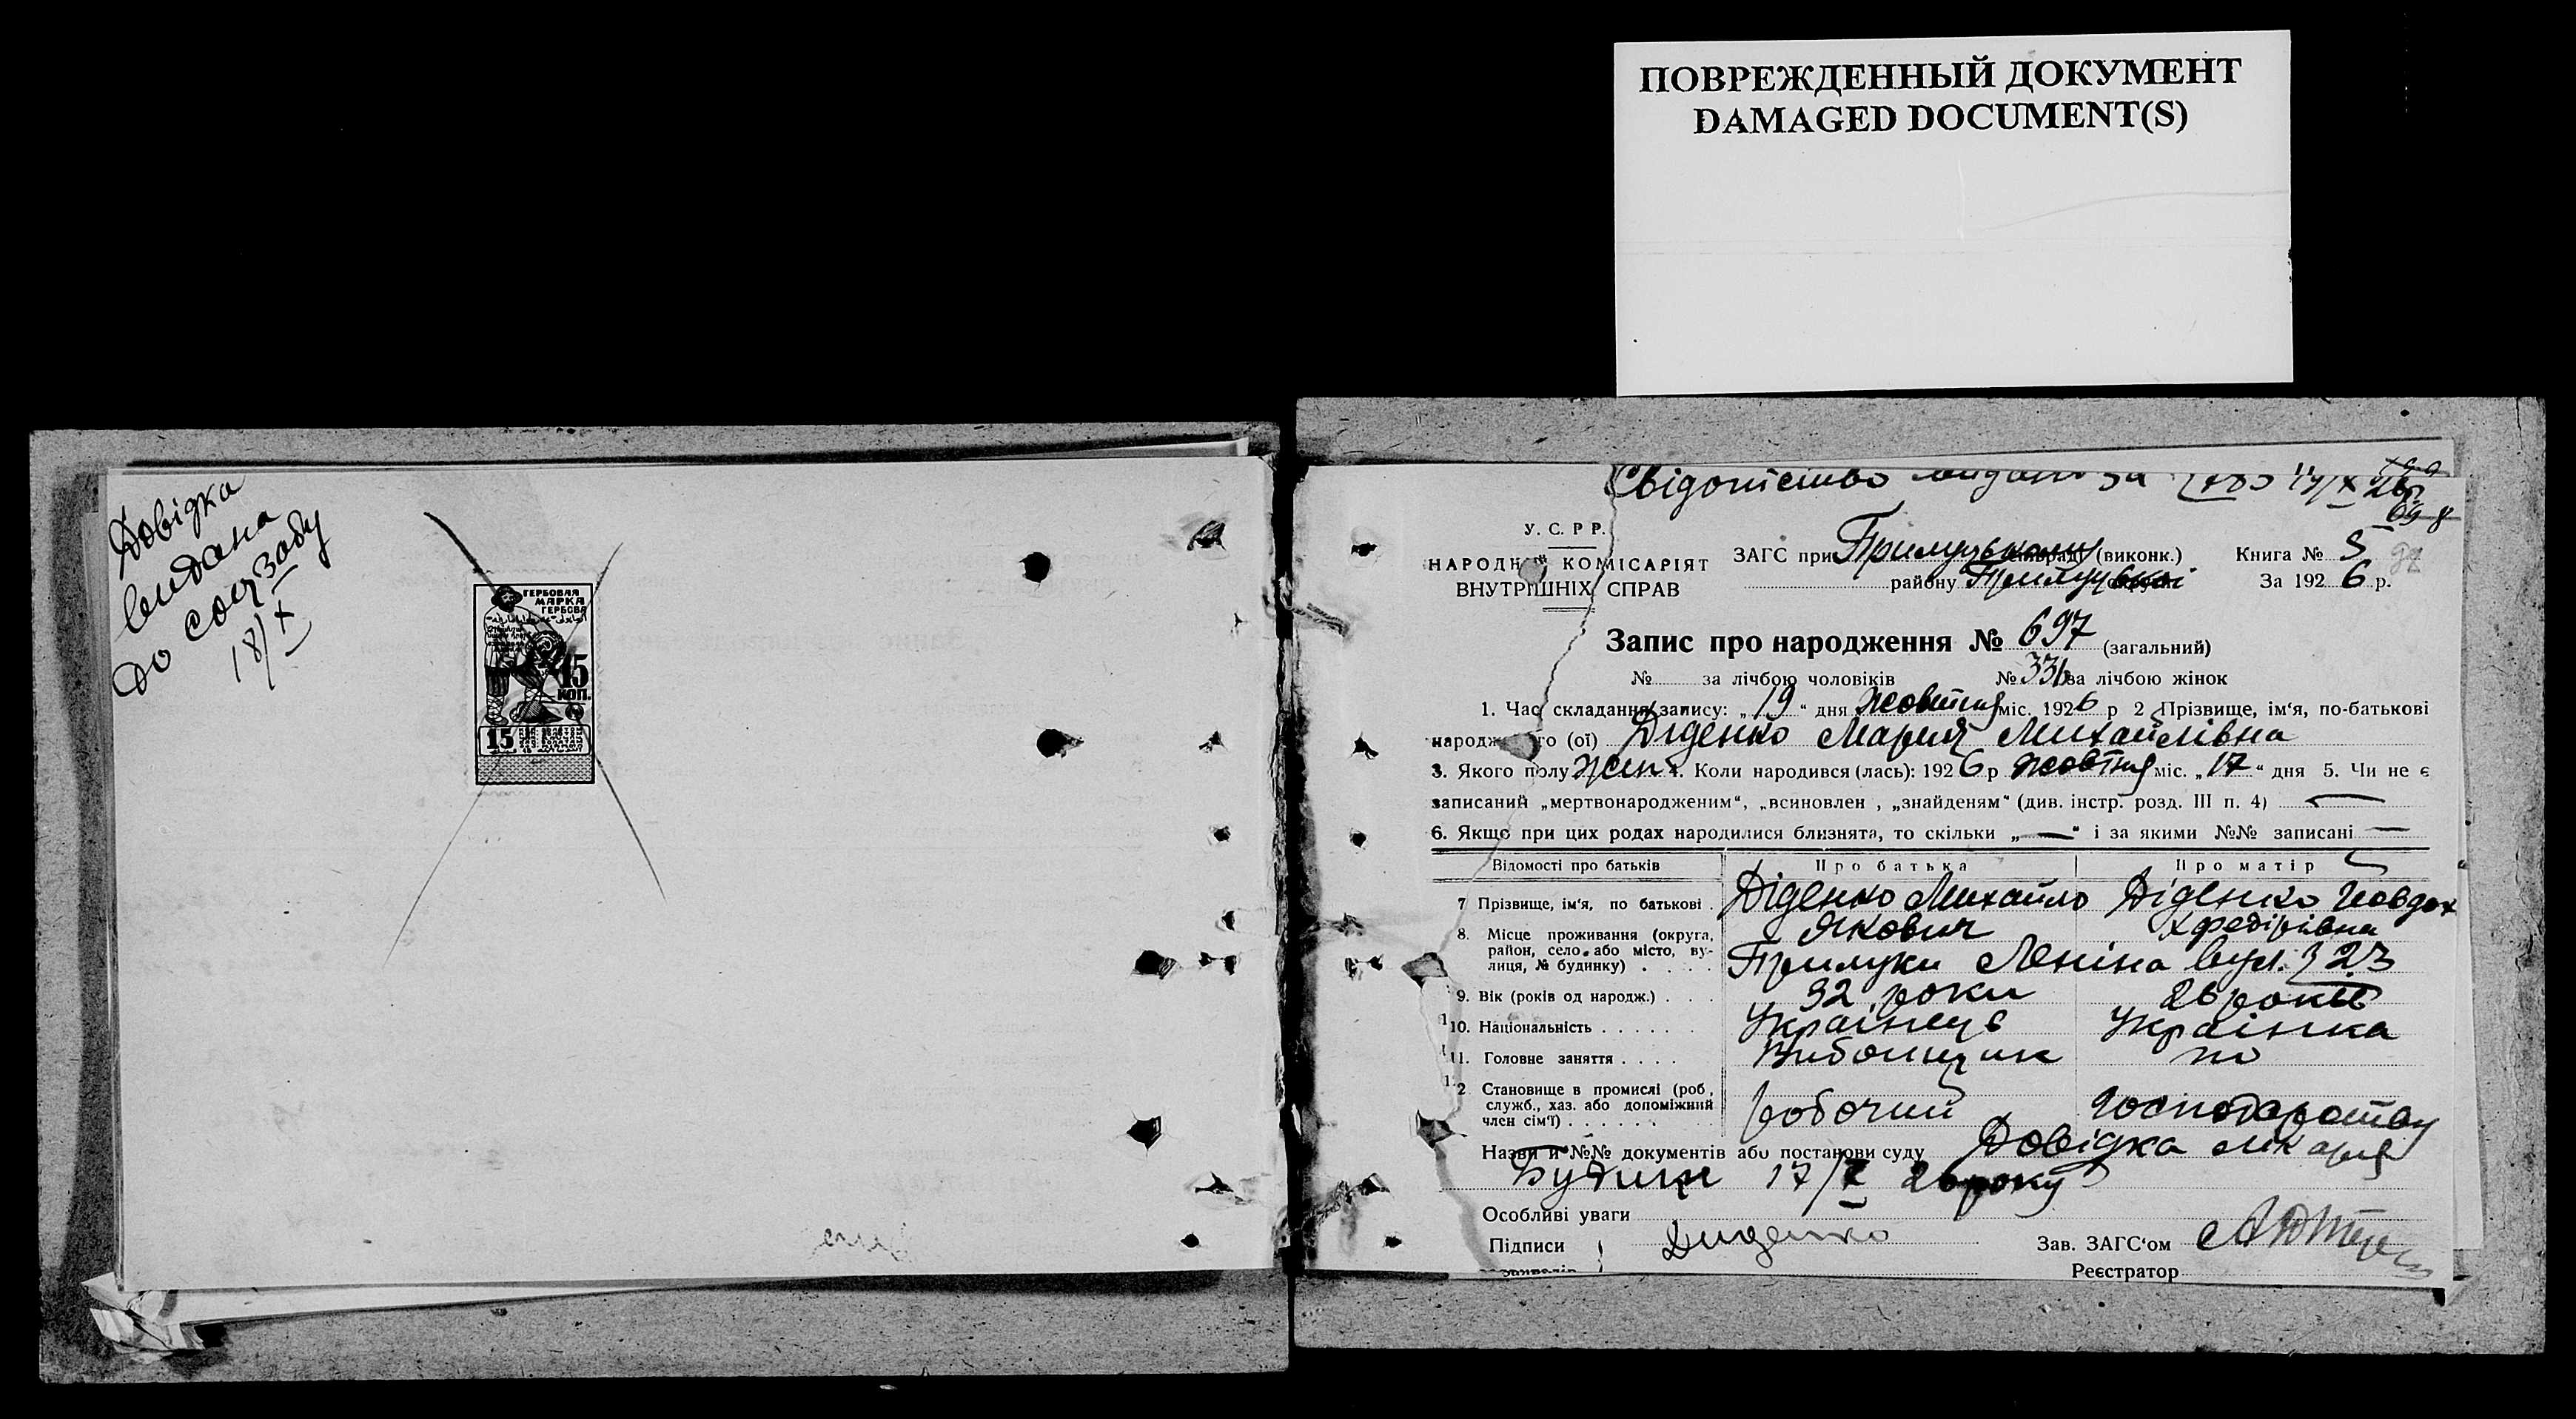 ПОВРЕЖДЕННЫЙ ДОКУМЕНТ
DAMAGED DOCUMENT(S)
Довідка
видана
до соцзабу
18/X
ГЕРБОВАЯ
МАРКА
ГЕРБОВА
15
КОП.
15
Свідоцтво видано за
У. С. Р. Р.
НАРОДНИЙ КОМІСАРІЯТ
ВНУТРІШНІХ СПРАВ
ЗАГС при Прилуцькому (виконк.)
району Прилуцької
Книга № 3
За 1926 р.
Запис про народження № 697 (загальний)
№ за лічбою чоловіків № 336 за лічбою жінок
1. Час складання запису: „19“ дня жовтня міс. 1926 р 2 Прізвище, ім‘я, по-батькові
народженого (ої) Діденко Мария Михайлівна
3. Якого полу жін 4. Коли народився (лась): 1926 р жовтня міс. „17“ дня 5. Чи не є
записаний „мертвонародженим“, „всиновлен , „знайденям“ (див. інстр. розд. III п. 4) —
6. Якщо при цих родах народилися близнята, то скільки „—“ і за якими №№ записані —
Відомості про батьків Про батька Про матір
7 Прізвище, ім‘я, по батькові . Діденко Михайло Якович Діденко Явдох Хфедірівна
8. Місце проживання (округа, район, село або місто, вулиця, № будинку) . . . . Прилуки Леніна вул. 23
9. Вік (років од народж.) . . . 32 роки 26 років
10. Національність . . . . . . Українець Українка
11. Головне заняття . . . . Вибойщик по
12 Становище в промислі (роб., служб., хаз. або допоміжний член сім‘ї) . . . . . . робочий господарству
Назви и №№ документів або постанови суду Довідка лікаря
17/X 26 року
Особливі уваги
Підписи Диденко
Зав. ЗАГС‘ом
Реєстратор